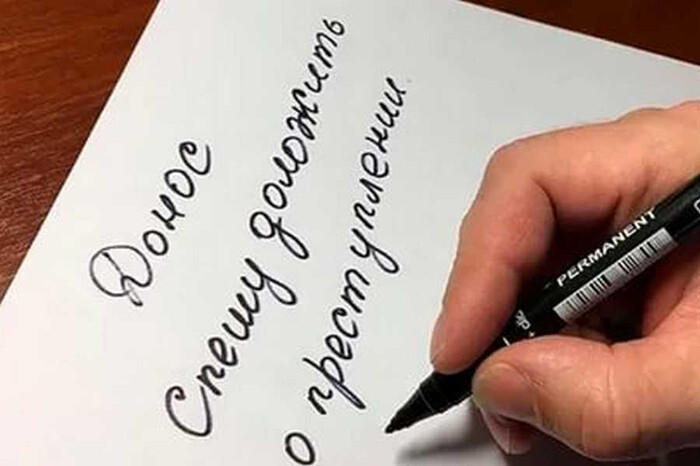 Донос
Спешу доложить
о преступлении.
PERMANENT